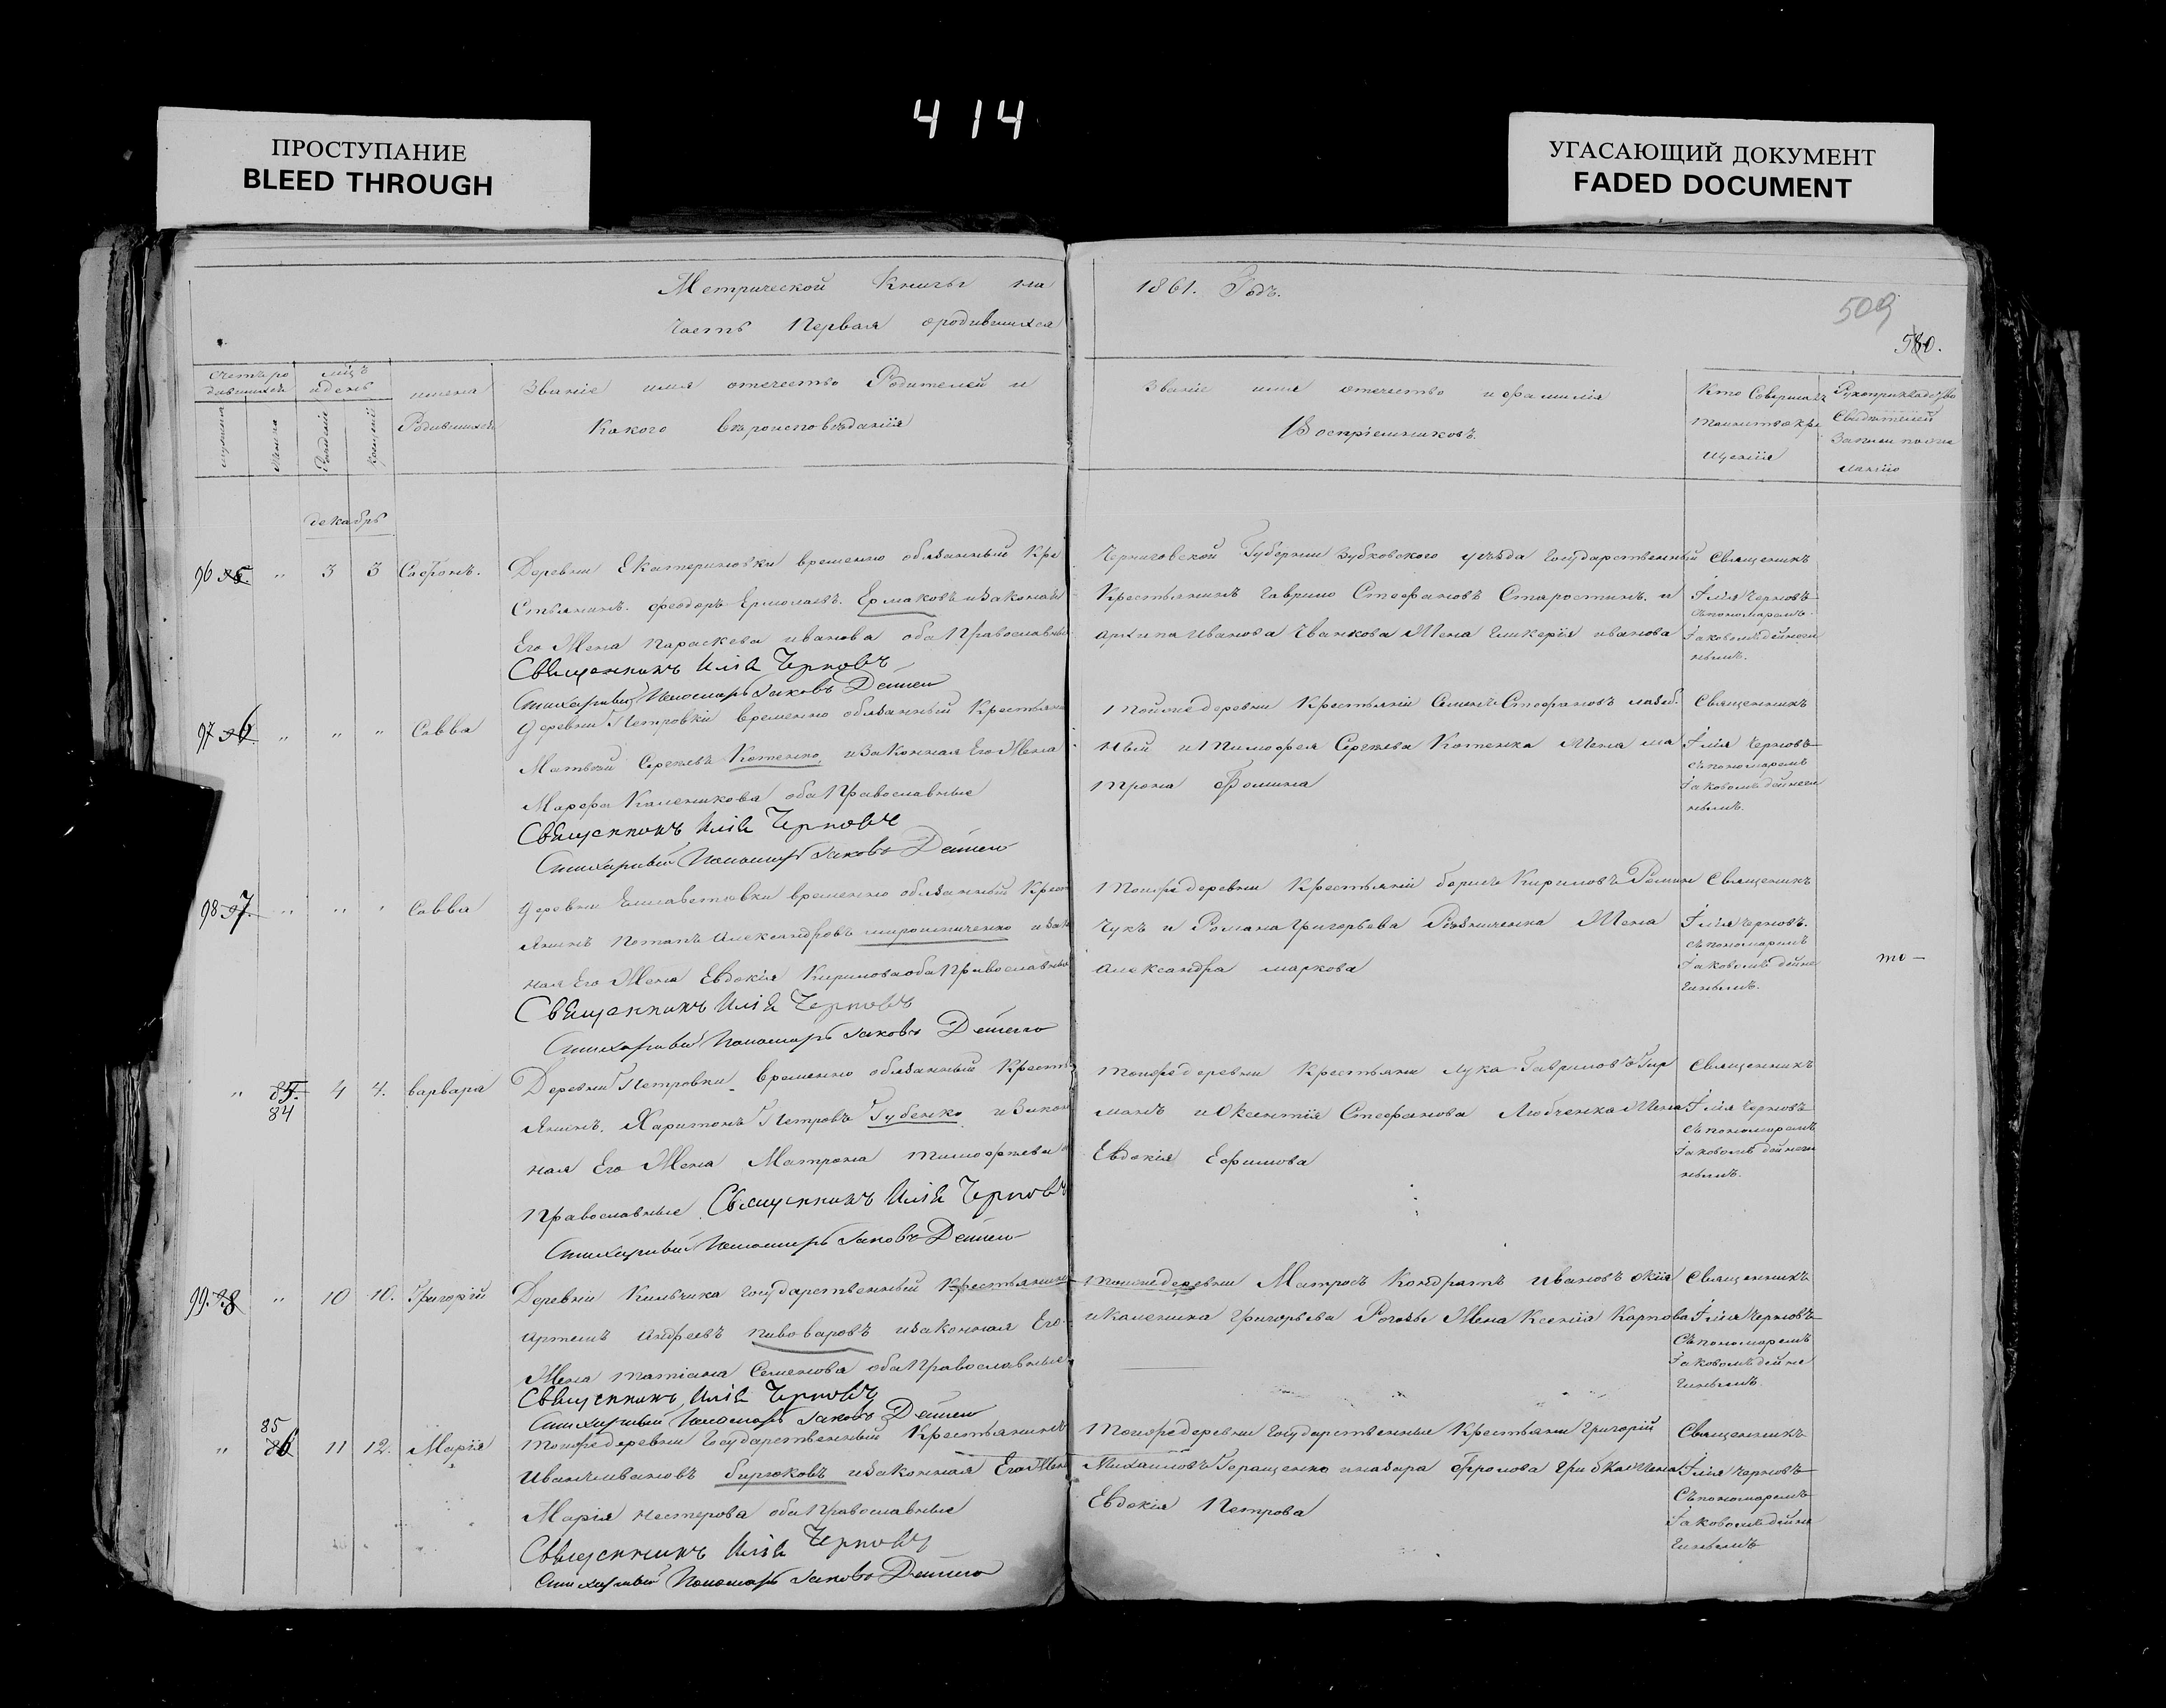 414
ПРОСТУПАНИЕ
BLEED THROUGH
УГАСАЮЩИЙ ДОКУМЕНТ
FADED DOCUMENT
Метрической Книги на
1861. Годъ.
509
580.
Часть Первая ородившихся
Счетъ ро
дившихся
мцъ
и день
имена
Родившихся
Званіе имя отечество Родителей и
Какого вѣроисповѣданія
Званіе имя отечество и фамилія
Воспріемниковъ.
Кто Соверша
таинство кре
щенія
Рукоприкладство
Свидѣтелей
Записи по
ланію
мужеска
женска
Рожденія
крещенія
декабрь
96 95. " 3 3 Софонъ.
Деревни Екатериновки временно обязанный Кре
стьянинъ. Феодоръ Ермолаевъ. Ермаковъ и законая
Его Жена Параскева иванова оба Православные
Священникъ Илія Черновъ
Стихарный Пономарь Іаковъ
Черниговской Губернии уѣзда государственный
Крестьянинъ Гаврило Стефановъ Старостинъ. и
Архипа Иванова Жена Гликерія иванова
Священникъ
Ілія Черновъ
съ пономаремъ
Іаковомъ дейнеги
нымъ.
97 96. " " " Савва
Деревни Петровки временно обязанный Крестьяни
Матвей Сергѣевъ Котенко и законная Его Жена
Марфа Каленикова оба Православные
Священникъ Илія Черновъ
Стихарный Пономарь Іаковъ
Тойже деревни Крестьяній Семенъ Стефановъ
ный и Тимофея Сергѣева Котенка Жена ма
трона Фомина
Священникъ
Ілія Черновъ
съ пономаремъ
Іаковомъ дейнеги
нымъ.
98 97. " " " Савва
Деревни Елисаветовки временно обязанный Крест
янинъ Потапъ Александровъ мирошниченко и закон
ная Его Жена Евдокія Кирилова оба Православные
Священникъ Илія Черновъ
Стихарный Пономарь Іаковъ
Тойже деревни Крестьяній Кириловъ
чукъ и Романа Григорьева Рѣзниченка Жена
Александра маркова
Священникъ
Ілія Черновъ.
съ пономаремъ
Іаковомъ дейне
гинымъ.
то —
" 85. 84 4 4. варвара
Деревни Петровки временно обязанный Кресть
янинъ. Харитонъ Петровъ Губенко и закон
ная Его Жена Матрона тимофеева
Православные Священникъ Илія Черновъ
Стихарный Пономарь Іаковъ
Тойже деревни Крестьяни Лука Гавриловъ Гир
манъ и Стефанова Любченка Жена
Евдокія Ефимова
Священникъ
Ілія Черновъ
съ пономаремъ
Іаковомъ дейнеги
нымъ.
99. 98 " 10 10. Григорій
Деревни Кильчика государственный Крестьянинъ
Артемъ Андреевъ пивоваровъ и законная Его
Жена татіана Семенова оба Православные
Священникъ Илія Черновъ
Стихарный Пономарь Іаковъ
Тойже деревни Матросъ Кондратъ ивановъ
и каленика Григорьева Жена Ксенія Карпова
Священникъ
Ілія Черновъ
Съ пономаремъ
Іаковомъ дейне
гинымъ
" 85 86 11 12. Марія
Тойже деревни Государственный Крестьянинъ
Иванъ ивановъ бирюковъ и законная Его Жена
Марія нестерова оба Православные
Священникъ Илія Черновъ
Стихарный Пономарь Іаковъ
Тойже деревни государственные Крестьяни Григорій
Михаиловъ Геращенко и назара Фролова Жена
Евдокія Петрова
Священникъ
Ілія Черновъ
Съ пономаремъ
Іаковомъ дейне
гинымъ